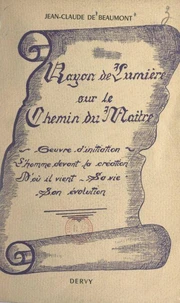 JEAN-CLAUDE DE BEAUMONT
Rayon de Lumière
sur le
Chemin du Maître
Oeuvre d'initation
L'homme devant la création
D'où il vient _ Sa vie
Son évolution
DERVY